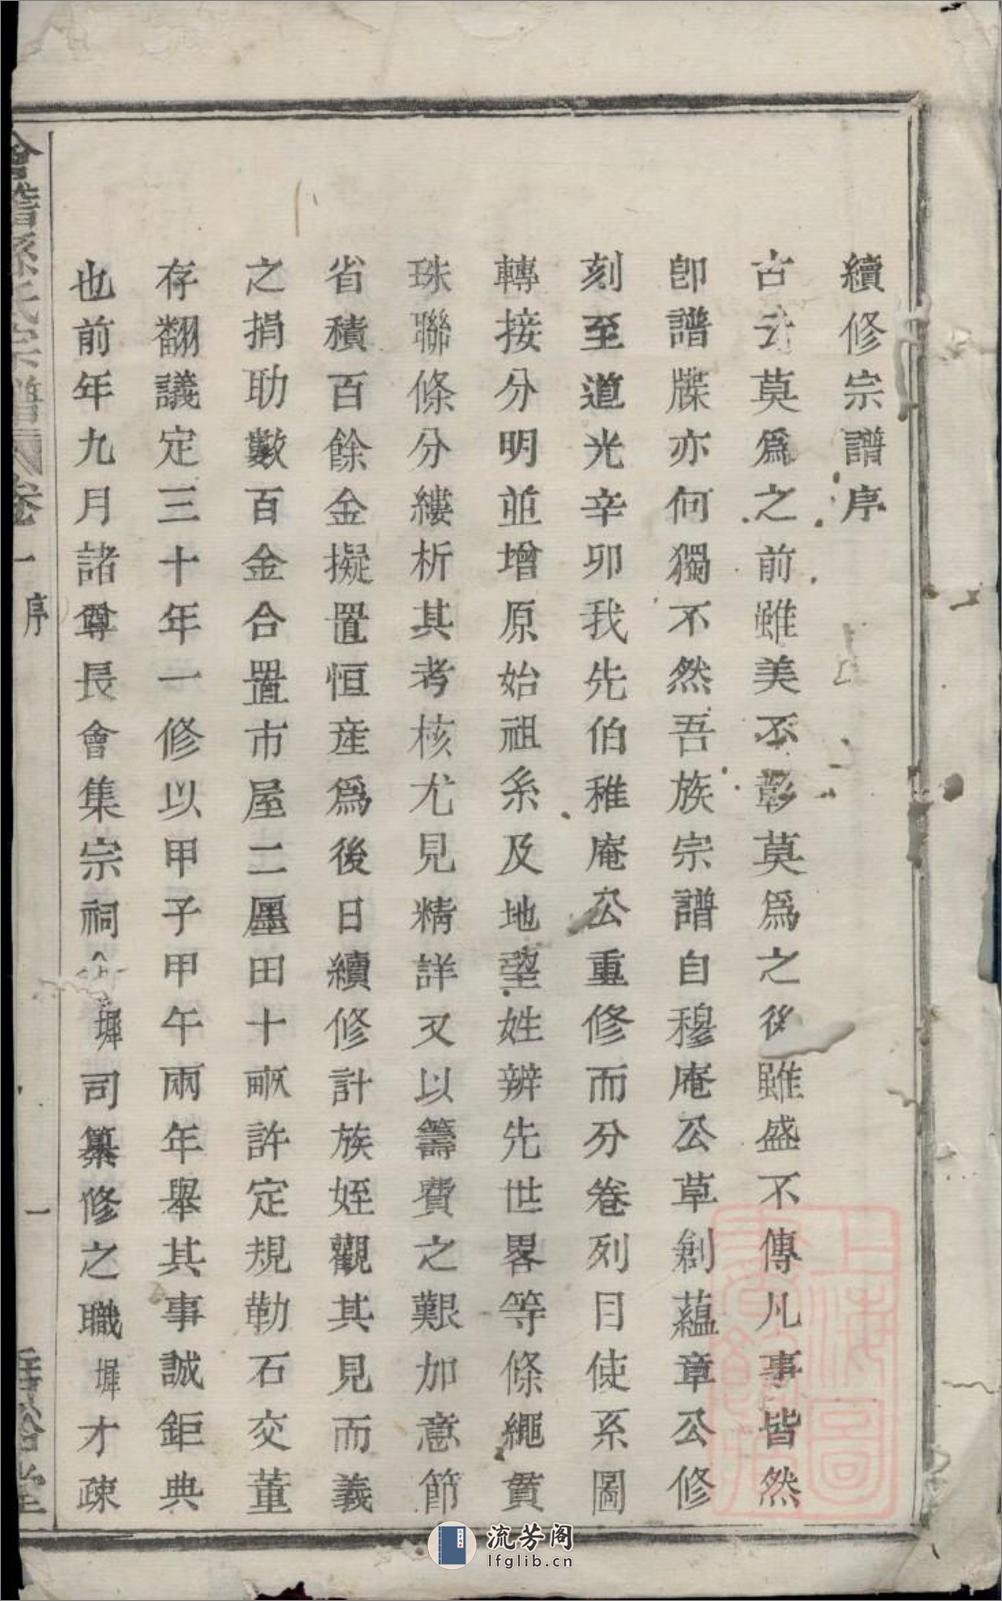 續修宗譜序
古云莫爲之前雖美不彰莫爲之後雖盛不傳凡事皆然
卽譜牒亦何獨不然吾族宗譜自穆庵公草創蘊章公修
刻至道光辛卯我先伯稚庵公重修而分卷列目使系圖
轉接分明並增原始祖系及地望姓辨先世畧等條繩貫
珠聯條分縷析其考核尤見精詳又以籌費之艱加意節
省積百餘金擬置恒產爲後日續修計族姪觀其見而義
之捐助數百金合置市屋二廛田十畝許定規勒石交董
存翻議定三十年一修以甲子甲午兩年舉其事誠鉅典
也前年九月諸尊長會集宗祠 墀司纂修之職墀才疎
會稽孫氏宗譜 卷一 序 一 堂
上海圖
流芳阁
lfglib.cn